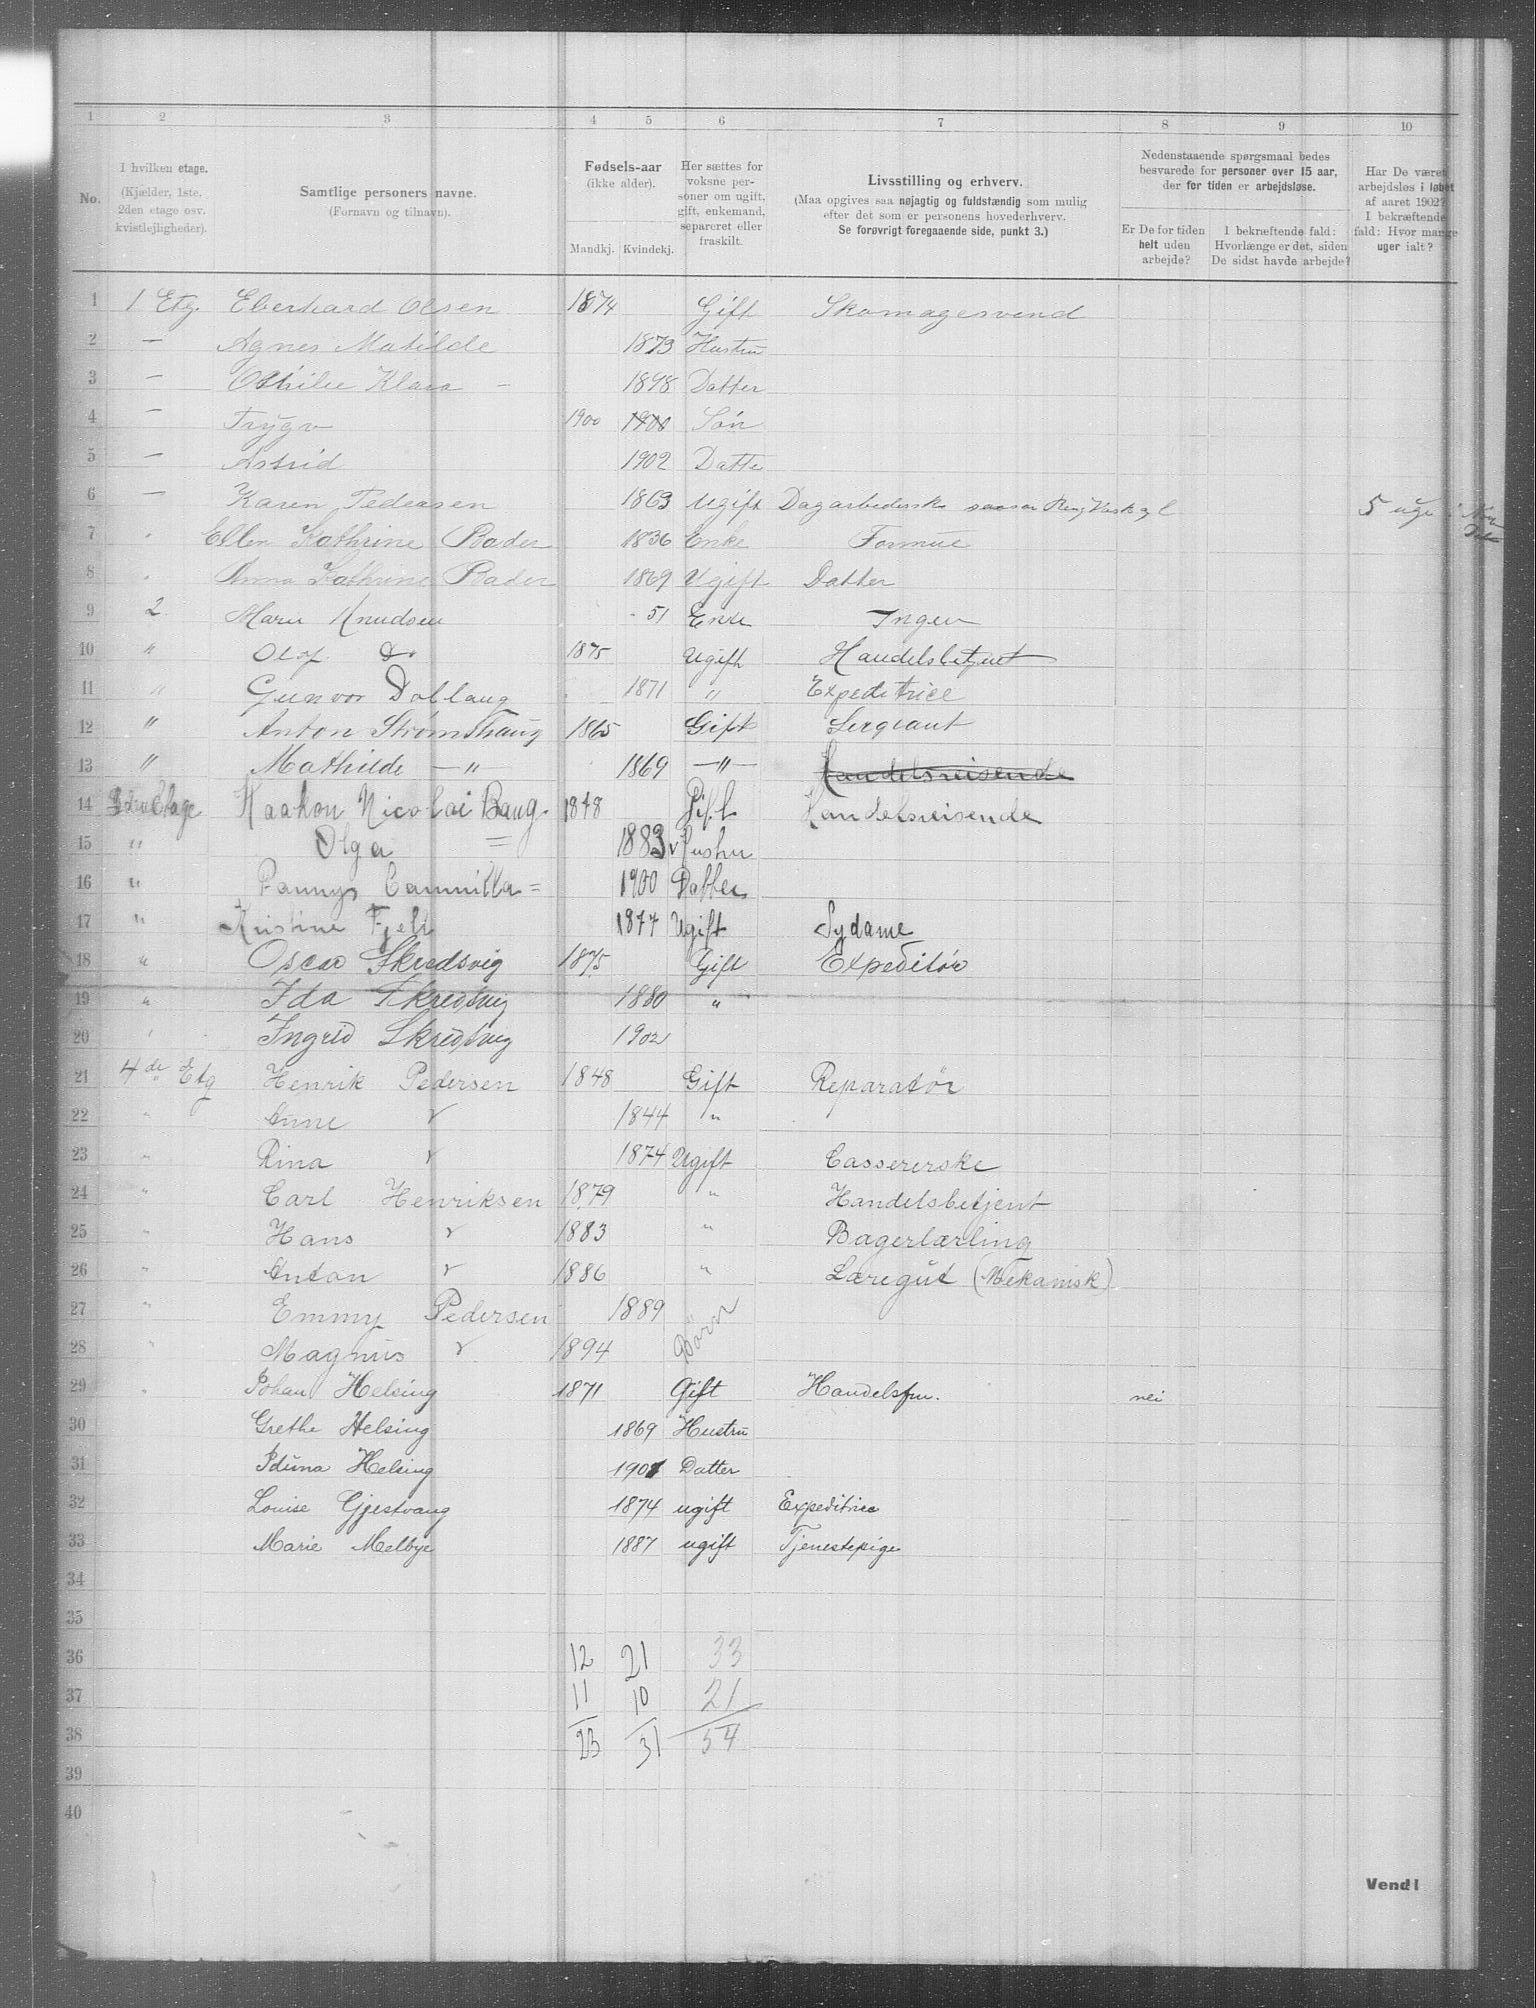 1 2 3 4 5 6 7 8 9 10
No.
I hvilken etage.
(Kjælder, 1ste,
2den etage osv.
kvistlejligheder).
Samtlige personers navne.
(Fornavn og tilnavn).
Fødsels-aar
(ikke alder).
Mandkj. Kvindekj.
Her sættes for
voksne per-
soner om ugift,
gift, enkemand,
separeret eller
fraskilt.
Livsstilling og erhverv.
(Maa opgives saa nøjagtig og fuldstændig som mulig
efter det som er personens hovederhverv.
Se forøvrigt foregaaende side, punkt 3.)
Nedenstaaende spørgsmaal bedes
besvarede for personer over 15 aar,
der for tiden er arbejdsløse.
Er De for tiden
helt uden
arbejde?
I bekræftende fald:
Hvorlænge er det, siden
De sidst havde arbejde?
Har De været
arbejdsløs i løbet
af aaret 1902?
I bekræftende
fald: Hvor mange
uger ialt?
1 1 Etg. Eberhard Olsen 1874 Gift Skomagesvend
2 — Agnes Matilde 1873 Hustru
3 — Othilie Klara — 1898 Datter
4 — Trygv 1900 1900 Søn
5 — Astrid 1902 Datte
6 — Karen Pedersen 1863 Ugift Dagarbederske 5 uge
7 Ellen Kathrine Bader 1836 Enke Formue
8 Anna Kathrine Bader 1869 Ugift Datter
9 2 Marie Knudsen - 51 Enke Ingen
10 " Olof Do 1875 Ugift Handelsbetjent
11 " Gunvor Dollaug 1871 " Expeditrice
12 " Anton Strømshaug 1865 Gift Sergeant
13 " Mathilde —"— 1869 —"— Handelsreisende
14 Etage Haakon Nicolai Baug 1848 Gift Handelsreisende
15 " Olga = 1883 Hustru
16 " Fannys Cammilla = 1900 Datter
17 " Kristine Fjeld 1877 Ugift Sydame
18 " Oscar Skredsvig 1875 Gift Expeditør
19 " Ida Skredsvig 1880 "
20 Ingrid Skredsvig 1902
21 4de Etg Henrik Pedersen 1848 Gift Reparatør
22 " Anne " 1844 "
23 " Rina " 1874 Ugift Cassererske
24 " Carl Henriksen 1879 " Handelsbetjent
25 " Hans " 1883 " Bagerlærling
26 " Anton " 1886 " Læregut (Mekanisk)
27 " Emmy Pedersen 1889 Børn
28 " Magnus " 1894
29 " Johan Helsing 1871 Gift Handelsfm. nei
30 Grethe Helsing 1869 Hustru
31 Iduna Helsing 1901 Datter
32 Louise Gjestvang 1874 ugift Expeditrice
33 Marie Melbye 1887 ugift Tjenestepige
34
35
36 12 21 33
37 11 10 21
38 23 31 54
39
40
Vend!